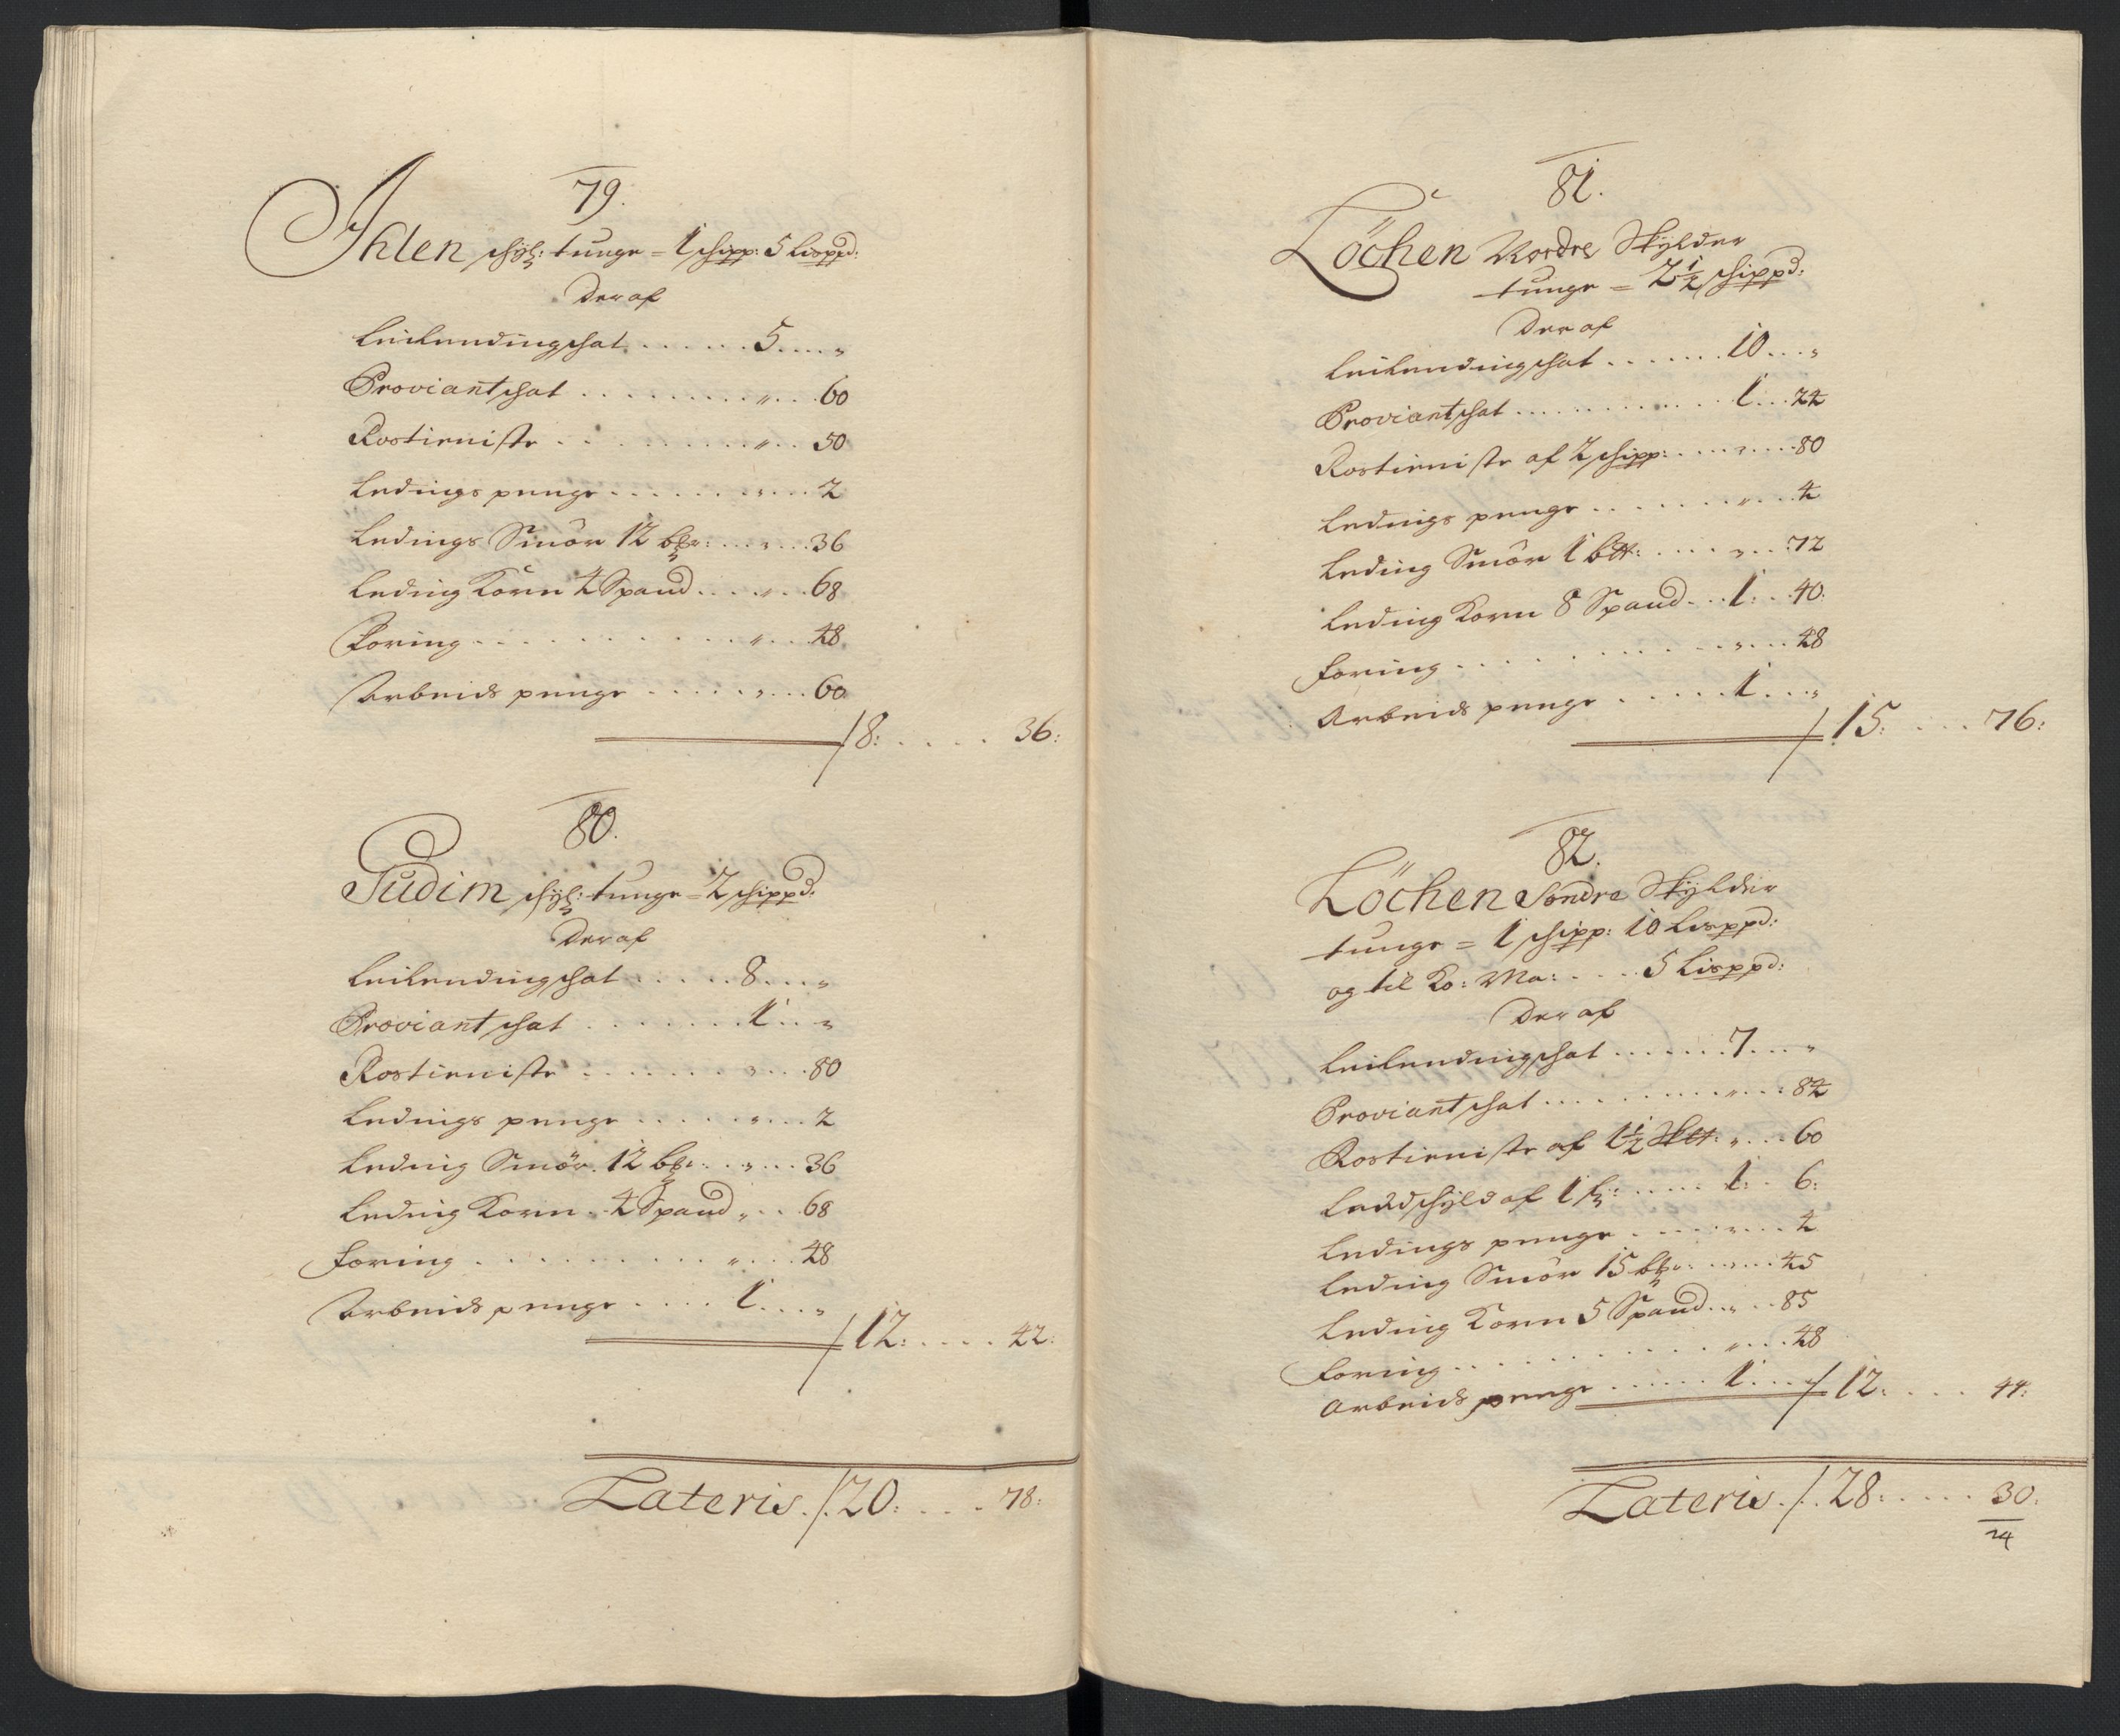 79.
Ihlen schÿl: tunge = 1 schipp: 5 Lisppd:
Der af
Leilendingschat . . . . . . 5 . . . . „
Proviantschat . . . . . . . . . „ . . . 60
Rostieniste . . . . . . . . . „ . . . 50
Ledings penge . . . . . . . „ . . . 2
Ledings Smör 12 : . . . „ . . . 36
Leding Korn 4 Spand . . . . „ . . . 68
Foring . . . . . . . . . . . „ . . . 48
Arbeids penge . . . . . . „ . . . 60
/8: . . . . . 36:
80.
Gudim schÿl: tunge = 2 schippd:
Der af
Leilendingschat . . . . . 8 . . . „
Proviantschat . . . . . . . 1 . . „
Rostieniste . . . . . . . „ . . . 80
Ledings penge . . . . . „ . . . 2
Leding Smör. 12 : . . „ . . . 36
Leding Korn . . 4 Spand „ . . . 68
Foring . . . . . . . . . . „ . . . 48
Arbeids penge . . . . . 1 . . . „
/12: . . . . 42:
Lateris ./. 20: . . . . 78:
81.
Löchen Nordre Skÿlder
tunge = 2 1/2 schippd:
Der af
Leilendingschat . . . . . . . 10 . . . „
Proviantschat . . . . . . . . . . . 1 . . . 24
Rostieniste af 2 schipp: . . . . „ . . . 80
Ledings penge . . . . . . . „ . . . 4
Leding Smör 1 : . . . . „ . . . 72
Leding Korn 8 Spand . . . 1: . . 40:
Foring . . . . . . . . . . . „ . . . 48
Arbeids penge . . . . . . 1 . . . „
/15: . . . . 76:
82.
Löchen Söndre Skÿlder
tunge = 1 schipp: 10 Lisppd:
og til Ko: Ma: . . . . 5 Lisppd:
Der af
Leilendingschat . . . . . . . 7 . . . „
Proviantschat . . . . . . . . . „ . . . 84
Rostieniste af 1 1/2 : „ . . . 60
Landschÿld af 1 : . . . . . 1: . . 6:
Ledings penge . . . . . „ . . . 4
Leding Smör 15 : . . „ . . . 45
Leding Korn 5 Spand . . „ . . . 85
Foring . . . . . . . . . . . „ . . . 48
Arbeids penge . . . . . . 1 . . . . /12: . . . . 44:
Lateris ./. 28: . . . . . 30:
24